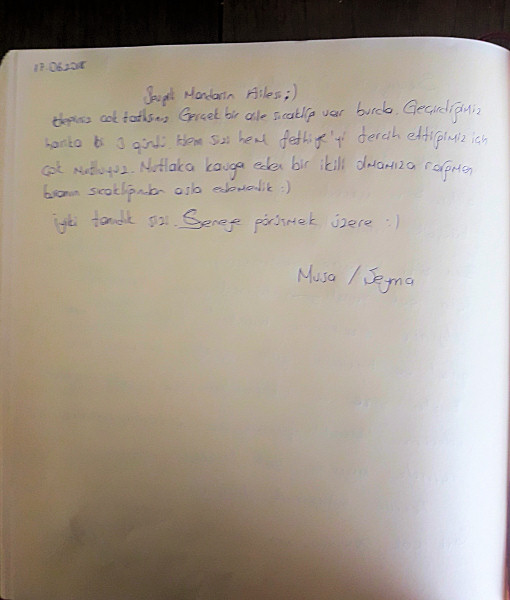 17.06.2018
Sevgili Mandarin Ailesi ;)
Hepiniz çok tatlısınız Gerçek bir aile sıcaklığı var burda. Geçirdiğimiz
harika bi 3 gündü. Hem sizi hem Fethiye'yi tercih ettiğimiz için
çok mutluyuz. Mutlaka kavga eden bir ikili olmamıza rağmen
buranın sıcaklığından asla edemedik :)
iyiki tanıdık sizi. Seneye görüşmek üzere :)
Musa / Şeyma